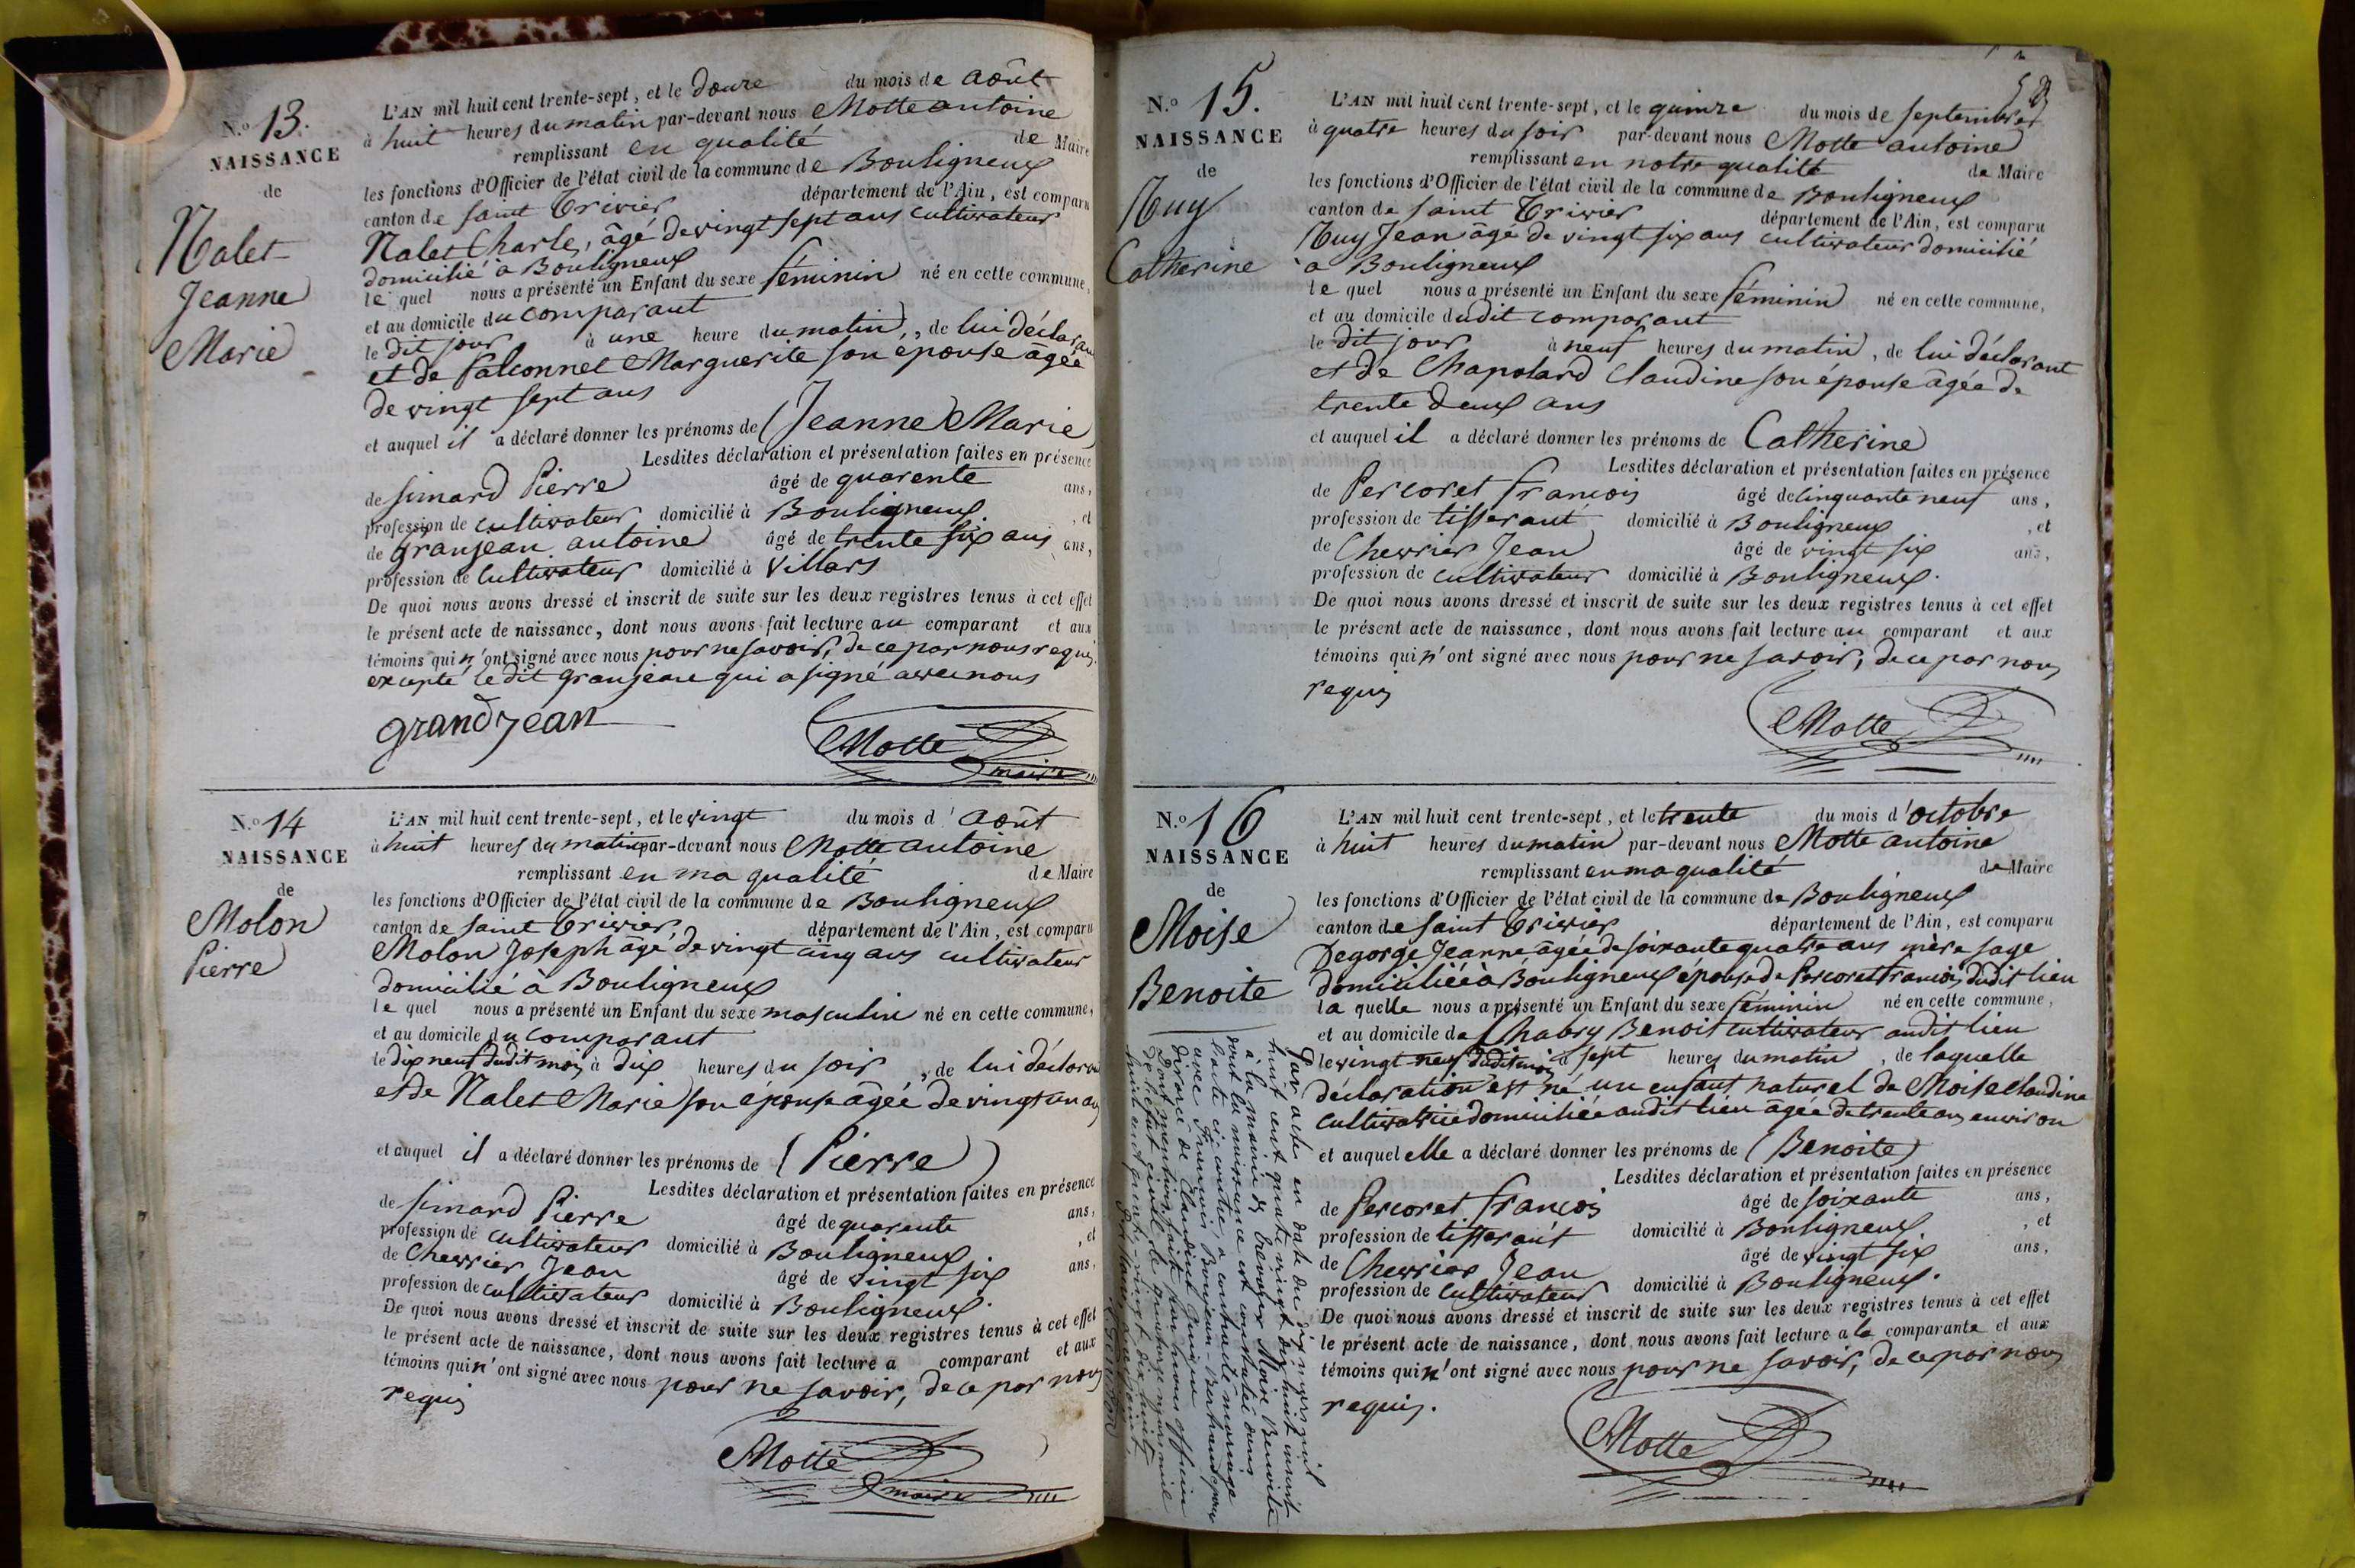 N.º 13.
NAISSANCE
de
Nalet
Jeanne
Marie
L'AN mil huit cent trente-sept, et le douze du mois de août
à huit heures du matin par-devant nous Motte antoine
remplissant en qualité de Maire
les fonctions d'Officier de l'état civil de la commune de Bouligneux
canton de saint Trivier département de l'Ain, est comparu
Nalet Charles, âgé de vingt sept ans cultivateur
domicilié à Bouligneux
le quel nous a présenté un Enfant du sexe féminin né en cette commune,
et au domicile du comparant
le dit jour à une heure du matin, de lui déclarant
et de falconnet Marguerite son épouse âgée
de vingt sept ans
et auquel il a déclaré donner les prénoms de (Jeanne Marie)
Lesdites déclaration et présentation faites en présence
de simard Pierre âgé de quarente ans,
profession de cultivateur domicilié à Bouligneux, et
de granjean antoine âgé de trente six ans ans,
profession de cultivateur domicilié à Villars
De quoi nous avons dressé et inscrit de suite sur les deux registres tenus à cet effet
le présent acte de naissance, dont nous avons fait lecture au comparant et aux
témoins qui n'ont signé avec nous pour ne savoir, de ce par nous requis.
excepté le dit granjean qui a signé avec nous
grandjean
Motte
maire
N.º 14
NAISSANCE
de
Molon
Pierre
L'AN mil huit cent trente-sept, et le vingt du mois d'août
à huit heures du matin par-devant nous Motte antoine
remplissant en ma qualité de Maire
les fonctions d'Officier de l'état civil de la commune de Bouligneux
canton de saint Trivier, département de l'Ain, est comparu
Molon Joseph âgé de vingt cinq ans cultivateur
domicilié à Bouligneux
le quel nous a présenté un Enfant du sexe masculin né en cette commune,
et au domicile du comparant
le dix neuf dudit mois à dix heures du soir, de lui déclarant
et de Nalet Marie son épouse âgée de vingt un ans
et auquel il a déclaré donner les prénoms de (Pierre)
Lesdites déclaration et présentation faites en présence
de simard Pierre âgé de quarente ans,
profession de cultivateur domicilié à Bouligneux, et
de Chevrier Jean âgé de vingt six ans,
profession de cultivateur domicilié à Bouligneux.
De quoi nous avons dressé et inscrit de suite sur les deux registres tenus à cet effet
le présent acte de naissance, dont nous avons fait lecture a comparant et aux
témoins qui n'ont signé avec nous pour ne savoir, de ce par nous
requis
Motte
maire
N.º 15.
NAISSANCE
de
Tuy
Catherine
L'AN mil huit cent trente-sept, et le quinze du mois de septembre
à quatre heures du soir par-devant nous Motte antoine
remplissant en notre qualité de Maire
les fonctions d'Officier de l'état civil de la commune de Bouligneux
canton de saint Trivier département de l'Ain, est comparu
Tuy Jean âgé de vingt six ans cultivateur domicilié
à Bouligneux
le quel nous a présenté un Enfant du sexe féminin né en cette commune,
et au domicile dudit comparant
le dit jour à neuf heures du matin, de lui déclarant
et de Chapolard Claudine son épouse âgée de
trente deux ans
et auquel il a déclaré donner les prénoms de Catherine
Lesdites déclaration et présentation faites en présence
de Percoret françois âgé de cinquante neuf ans,
profession de tisserant domicilié à Bouligneux, et
de Chevrier Jean âgé de vingt six ans,
profession de cultivateur domicilié à Bouligneux.
De quoi nous avons dressé et inscrit de suite sur les deux registres tenus à cet effet
le présent acte de naissance, dont nous avons fait lecture au comparant et aux
témoins qui n'ont signé avec nous pour ne savoir, de ce par nous
requis
Motte
N.º 16
NAISSANCE
de
Moise
Benoite
L'AN mil huit cent trente-sept, et le trente du mois d'octobre
à huit heures du matin par-devant nous Motte antoine
remplissant en ma qualité de Maire
les fonctions d'Officier de l'état civil de la commune de Bouligneux
canton de saint Trivier département de l'Ain, est comparu
Degorge Jeanne âgée de soixante quatre ans mère sage
domiciliée à Bouligneux épouse de Percoret françois dudit lieu
la quelle nous a présenté un Enfant du sexe féminin né en cette commune,
et au domicile de Chabry Benoit cultivateur audit lieu
le vingt neuf dudit mois à sept heures du matin, de laquelle
déclaration est né un enfant naturel de Moise Claudine
cultivatrice domiciliée audit lieu âgée de trente ans environ
et auquel elle a déclaré donner les prénoms de (Benoite)
Lesdites déclaration et présentation faites en présence
de Percoret françois âgé de soixante ans,
profession de tisserant domicilié à Bouligneux, et
de Chevrier Jean âgé de vingt six ans,
profession de cultivateur domicilié à Bouligneux.
De quoi nous avons dressé et inscrit de suite sur les deux registres tenus à cet effet
le présent acte de naissance, dont nous avons fait lecture a la comparante et aux
témoins qui n'ont signé avec nous pour ne savoir, de ce par nous
requis.
Motte
Par acte en date du dix mars mil
huit cent quatre vingt dix huit inscrit
à la mairie de Moise Benoite
dont la naissance est constatée dans
l'acte ci contre, a contracté mariage
avec François
de Claudine
Dont mention faite par nous officier
de l'état civil
huit cent quatre-vingt dix huit